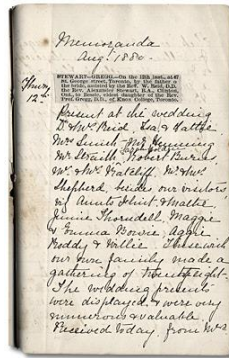 Memoranda
Aug. 1880.
STEWART—GREGG—On the 12th inst., at 47
St. George street, Toronto, by the father of
the bride, assisted by the Rev. W. Reid, D.D.
the Rev. Alexander Stewart, B.A., Clinton,
Ont., to Bessie, eldest daughter of the Rev.
Prof. Gregg, D.D., of Knox College, Toronto.
Thurs,
12th
Present at the wedding
Dr & Mrs Reid, Isa & Hattie
Mrs Smith, Mr Henning
Mr Straith, Robert Burns,
Mr & Mrs Ratcliff, Mr & Mrs
Shepherd, beside our visitors
viz Aunts &
Jennie Thorndell, Maggie
& Emma Bowie, Aggie
Roddy & Willie. These with
our own family made a
gathering of twenty eight.
The wedding presents
were displayed & were very
numerous & valuable
Received today, from Mrs